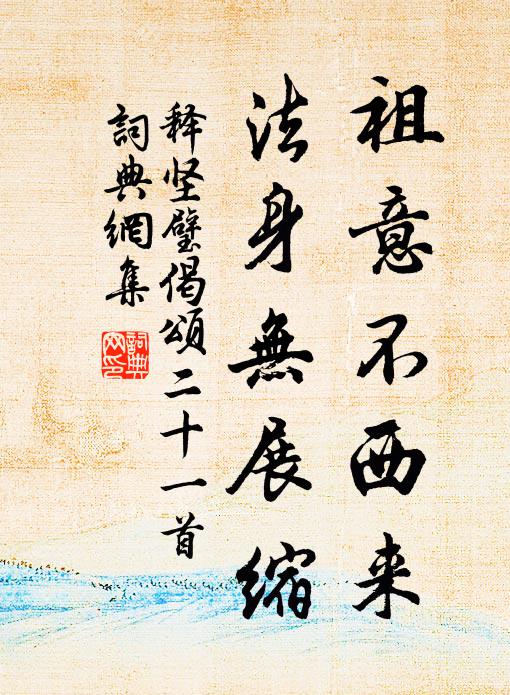 祖意不西来
法身無展缩
释坚璧偈頌二十一首
詞典網集
詞典